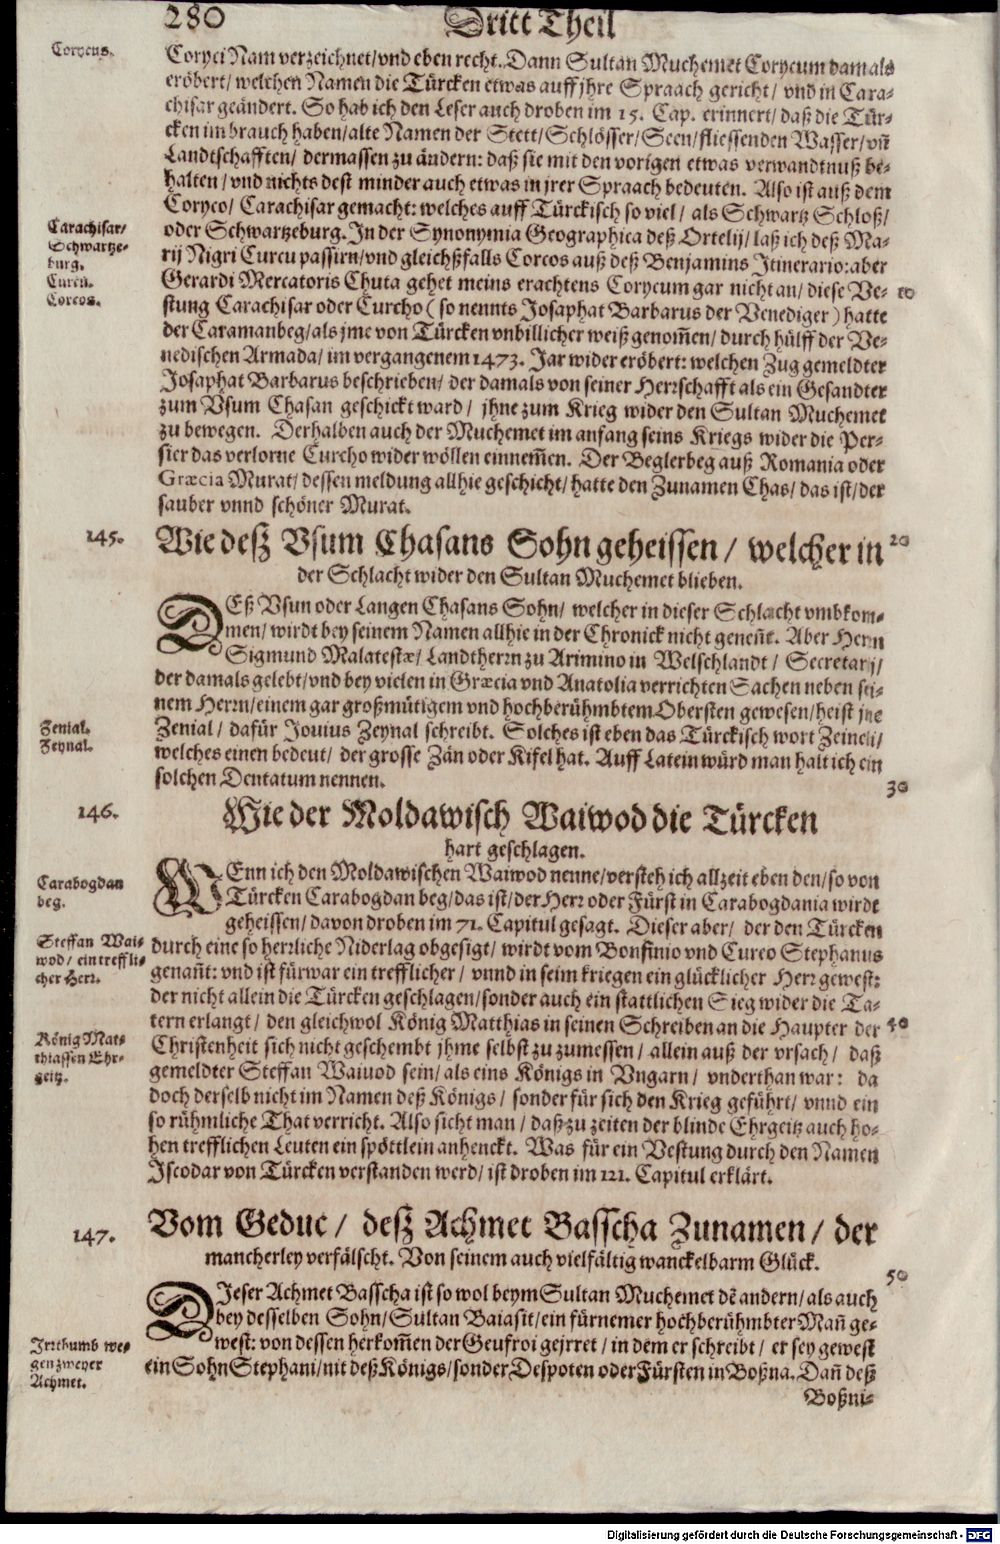 280 Dritt Theil
Corycus.
Coryci Nam verzeichnet/vnd eben recht. Dann Sultan Muchemet Corycum damals
eröbert/ welchen Namen die Türcken etwas auff jhre Spraach gericht/ vnd in Cara-
chisar geändert. So hab ich den Leser auch droben im 15. Cap. erinnert/ daß die Tür-
cken im brauch haben/alte Namen der Stett/Schlösser/Seen/fliessenden Wasser/vñ
Landtschafften/ dermassen zu ändern: daß sie mit den vorigen etwas verwandtnuß be-
halten/ vnd nichts dest minder auch etwas in jrer Spraach bedeuten. Also ist auß dem
Coryco/ Carachisar gemacht: welches auff Türckisch so viel/ als Schwartz Schloß/
Carachisar/
Schwartze-
burg.
Curcu.
Corcos.
oder Schwartzeburg. In der Synonymia Geographica deß Ortelij/ laß ich deß Ma-
rij Nigri Curcu passirn/vnd gleichßfalls Corcos auß deß Benjamins Itinerario: aber
Gerardi Mercatoris Chuta gehet meins erachtens Corycum gar nicht an/ diese Ve- 10
stung Carachisar oder Curcho (so nennts Josaphat Barbarus der Venediger) hatte
der Caramanbeg/als jme von Türcken vnbillicher weiß genom̃en/ durch hülff der Ve-
nedischen Armada/ im vergangenem 1473. Jar wider eröbert: welchen Zug gemeldter
Josaphat Barbarus beschrieben/ der damals von seiner Herrschafft als ein Gesandter
zum Vsum Chasan geschickt ward/ jhne zum Krieg wider den Sultan Muchemet
zu bewegen. Derhalben auch der Muchemet im anfang seins Kriegs wider die Per-
sier das verlorne Curcho wider wöllen einnem̃en. Der Beglerbeg auß Romania oder
Græcia Murat/ dessen meldung allhie geschicht/ hatte den Zunamen Chas/ das ist/der
sauber vnnd schöner Murat.
145. Wie deß Vsum Chasans Sohn geheissen/ welcher in 20
der Schlacht wider den Sultan Muchemet blieben.
DEß Vsun oder Langen Chasans Sohn/ welcher in dieser Schlacht vmbkom-
men/ wirdt bey seinem Namen allhie in der Chronick nicht geneñt. Aber Herrn
Sigmund Malatestæ/ Landtherrn zu Arimino in Welschlandt/ Secretarij/
der damals gelebt/vnd bey vielen in Græcia vnd Anatolia verrichten Sachen neben sei-
nem Herrn/einem gar großmütigem vnd hochberühmbtem Obersten gewesen/heist jne
Zenial.
Zeynal.
Zenial/ dafür Jouius Zeynal schreibt. Solches ist eben das Türckisch wort Zeineli/
welches einen bedeut/ der grosse Zän oder Kifel hat. Auff Latein würd man halt ich ein
solchen Dentatum nennen. 30
146. Wie der Moldawisch Waiwod die Türcken
hart geschlagen.
Carabogdan
beg.
WEnn ich den Moldawischen Waiwod nenne/versteh ich allzeit eben den/so von
Türcken Carabogdan beg/das ist/der Herr oder Fürst in Carabogdania wirdt
geheissen/ davon droben im 71. Capitul gesagt. Dieser aber/ der den Türcken
Steffan Wai-
wod/ ein treffli-
cher Herr.
durch eine so herrliche Niderlag obgesigt/ wirdt vom Bonfinio vnd Cureo Stephanus
genañt: vnd ist fürwar ein trefflicher/ vnnd in seim kriegen ein glücklicher Herr gewest:
der nicht allein die Türcken geschlagen/sonder auch ein stattlichen Sieg wider die Ta-
tern erlangt/ den gleichwol König Matthias in seinen Schreiben an die Haupter der 40
König Mat-
thiassen Ehr-
geitz.
Christenheit sich nicht geschembt jhme selbst zu zumessen/ allein auß der vrsach/ daß
gemeldter Steffan Waiuod sein/als eins Königs in Vngarn/ vnderthan war: da
doch derselb nicht im Namen deß Königs/ sonder für sich den Krieg geführt/ vnnd ein
so rühmliche That verricht. Also sicht man/ daß zu zeiten der blinde Ehrgeitz auch ho-
hen trefflichen Leuten ein spöttlein anhenckt. Was für ein Vestung durch den Namen
Iscodar von Türcken verstanden werd/ ist droben im 121. Capitul erklärt.
147. Vom Geduc/ deß Achmet Basscha Zunamen/ der
mancherley verfälscht. Von seinem auch vielfältig wanckelbarm Glück.
50
DIeser Achmet Basscha ist so wol beym Sultan Muchemet dẽ andern/als auch
bey desselben Sohn/Sultan Baiasit/ein fürnemer hochberühmbter Mañ ge-
Irrthumb we-
gen zweyer
Achmet.
west: von dessen herkom̃en der Geufroi gejrret/ in dem er schreibt/ er sey gewest
ein Sohn Stephani/nit deß Königs/sonder Despoten oder Fürsten in Boßna. Dañ deß
Boßni-
Digitalisierung gefördert durch die Deutsche Forschungsgemeinschaft - DFG